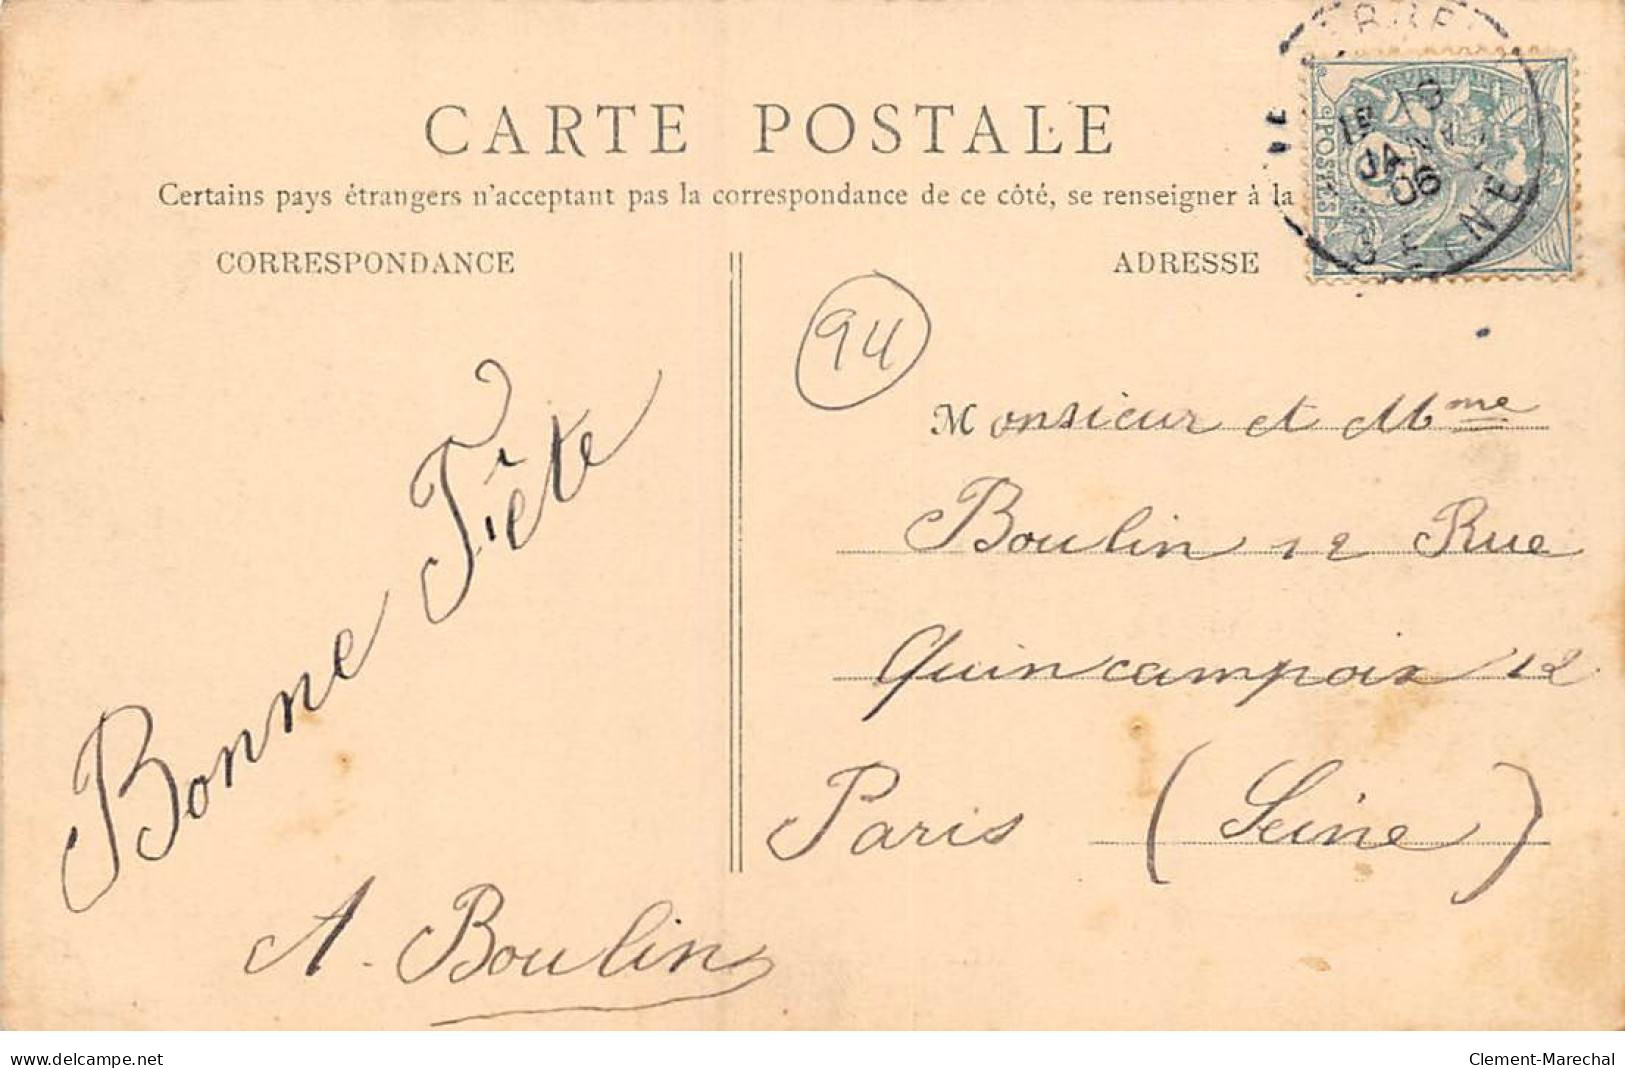 CARTE POSTALE
Certains pays étrangers n'acceptant pas la correspondance de ce côté, se renseigner à la
CORRESPONDANCE
ADRESSE
POSTES
13
JANV
06
SEINE
94
Bonne Fête
A. Boulin
Monsieur et Mme
Boulin 12 Rue
Quincampoix 12
Paris (Seine)
www.delcampe.net
Clement-Marechal